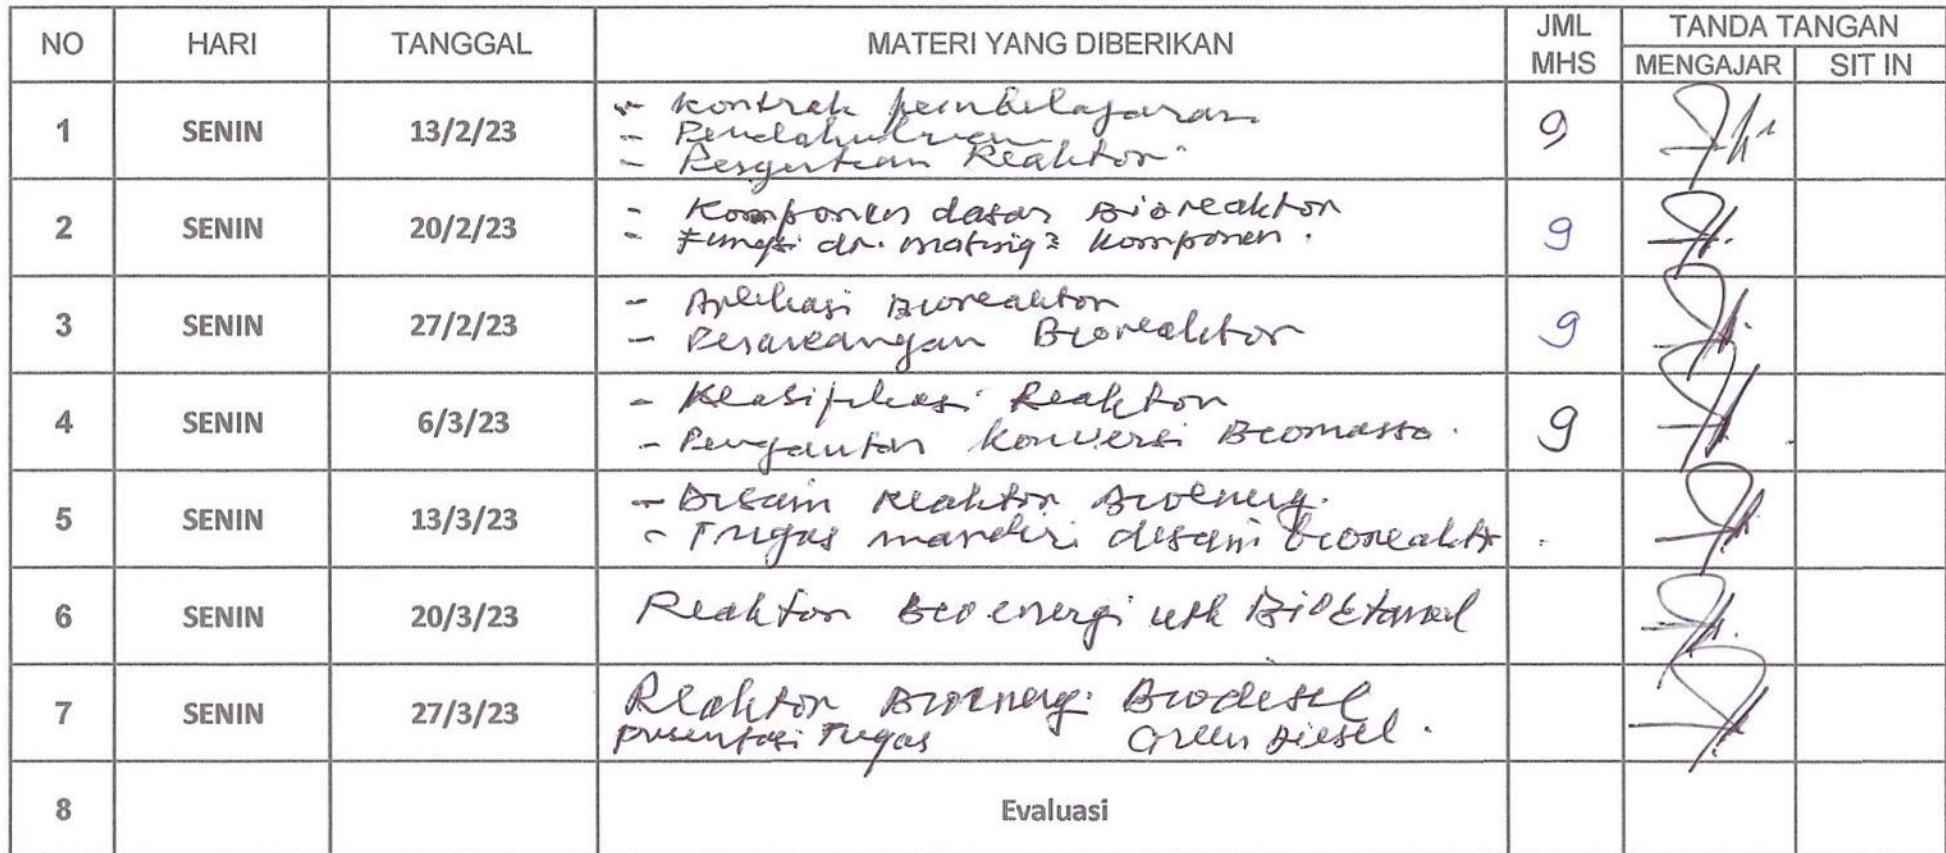 NO HARI TANGGAL MATERI YANG DIBERIKAN JML MHS TANDA TANGAN
MENGAJAR SIT IN
1 SENIN 13/2/23 - Kontrak pembelajaran 9
- Pendahuluan
- Reaktor
2 SENIN 20/2/23 - Komponen dasar Bioreaktor 9
- Fungsi dr. masing2 komponen.
3 SENIN 27/2/23 - Aplikasi Bioreaktor 9
- Perancangan Bioreaktor
4 SENIN 6/3/23 - Klasifikasi Reaktor 9
- Pengantar konversi Biomassa.
5 SENIN 13/3/23 - Disain Reaktor Bioenergi.
- Tugas mandiri desain bioreaktor
6 SENIN 20/3/23 Reaktor Bioenergi utk BioEtanol
7 SENIN 27/3/23 Reaktor Bioenergi Biodiesel
presentasi Tugas Green Diesel.
8 Evaluasi